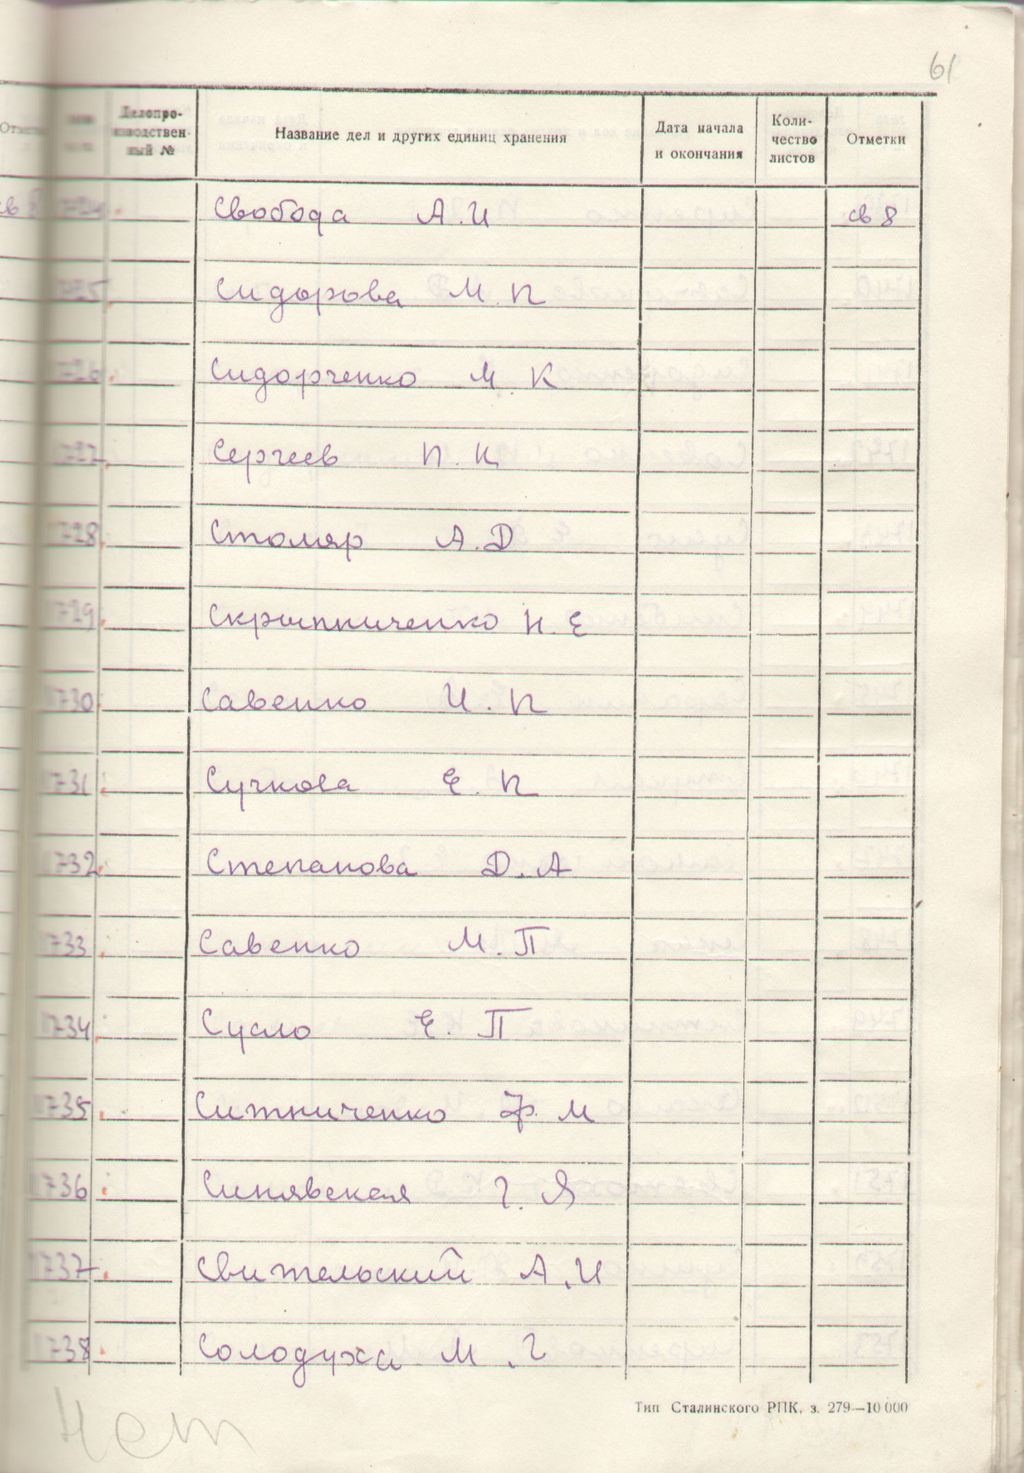 61
Делопроизводственный № Название дел и других единиц хранения Дата начала и окончания Количество листов Отметки
1724 Свобода А.И св 8
1725 Сидорова М.П
1726 Сидорченко М.К
1727 Сергеев П.К
1728 Столяр А.Д
1729 Скрыпниченко Н.Е
1730 Савенко И.П
1731 Сучкова Е.П
1732 Степанова Д.А
1733 Савенко М.П
1734 Сусло Е.П
1735 Ситниченко Ф.М
1736 Синявская Г.Я
1737 Свительский А.И
1738 Солодуха М.Г
Тип Сталинского РПК, з. 279—10 000
Нет